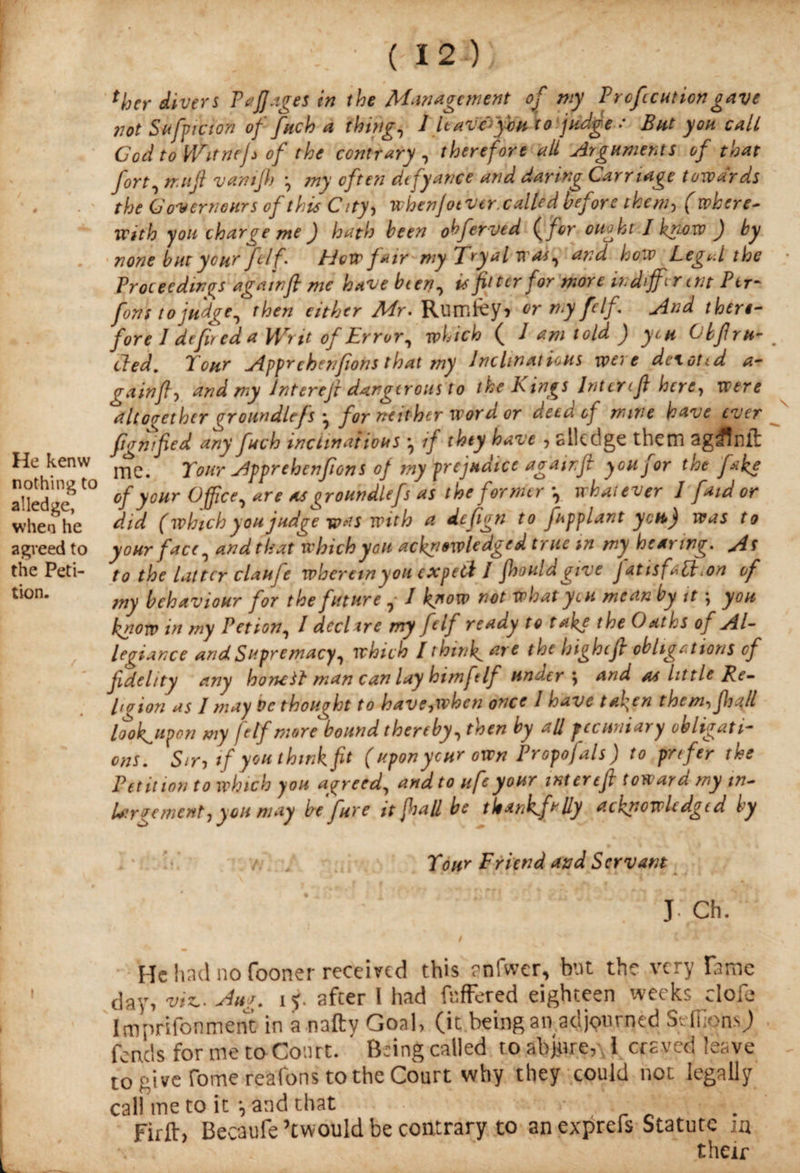 ( 12 )
ther divers Paſſages in the Management of my Proſecution gave
not Suſpicion of ſuch a thing, I leave you to judge: But you call
God to Witneſs of the contrary, therefore all Arguments of that
ſort, muſt vaniſh; my often defyance and daring Carriage towards
the Governours of this City, whenſoever called before them, (where-
with you charge me) hath been obſerved (for ought I know) by
none but your ſelf. How fair my Tryal was, and how Legal the
Proceedings againſt me have been, is fitter for more indifferent Per-
ſons to judge, then either Mr. Rumſey, or my ſelf. And there-
fore I deſired a Writ of Error, which ( I am told ) you Obſtru-
cted. Your Apprehenſions that my Inclinations were devoted a-
gainſt, and my Intereſt dangerous to the Kings Intereſt here, were
altogether groundleſs; for neither word or deed of mine have ever
ſignified any ſuch inclinations; if they have, alledge them againſt
me. Your Apprehenſions of my prejudice againſt you for the ſake
of your Office, are as groundleſs as the former; whatever I ſaid or
did (which you judge was with a deſign to ſupplant you) was to
your face, and that which you acknowledged true in my hearing. As
to the latter clauſe wherein you expect I ſhould give ſatisfaction of
my behaviour for the future, I know not what you mean by it; you
know in my Petion, I declare my ſelf ready to take the Oaths of Al-
legiance and Supremacy, which I think are the higheſt obligations of
fidelity any honeſt man can lay himſelf under; and as little Re-
ligion as I may be thought to have, when once I have taken them, ſhall
look upon my ſelf more bound thereby, then by all pecuniary obligati-
ons. Sir, if you think fit (upon your own Propoſals) to prefer the
Petition to which you agreed, and to uſe your intereſt toward my in-
largement, you may be ſure it ſhall be thankfully acknowledged by
He kenw
nothing to
alledge,
when he
agreed to
the Peti-
tion.
Your Friend and Servant
J. Ch.
He had no ſooner received this anſwer, but the very ſame
day, viz. Aug. 15. after I had ſuffered eighteen weeks cloſe
Impriſonment in a naſty Goal, (it being an adjourned Seſſions)
ſends for me to Court. Being called to abjure, I craved leave
to give ſome reaſons to the Court why they could not legally
call me to it; and that
Firſt, Becauſe ’twould be contrary to an expreſs Statute in
their